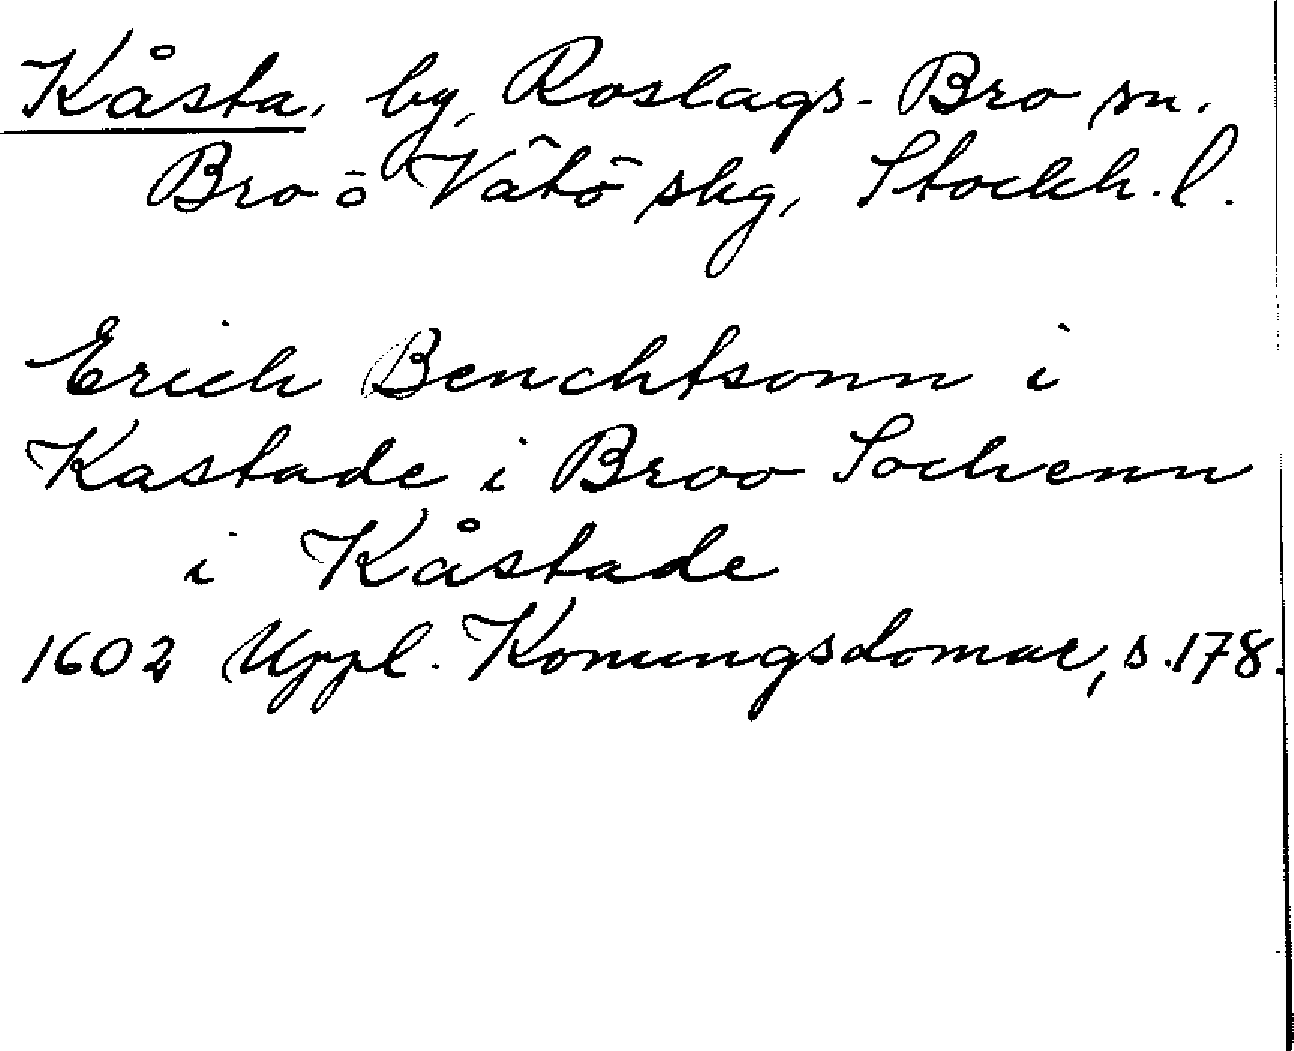 Kåsta, by, Roslags-Bro sn.
Bro o Vätö skg, Stockh. l.
Erich Benchtsonn i
Kastade i Broo Sochenn
i Kåstade
1602 Uppl. Konungsdomar, s. 178.